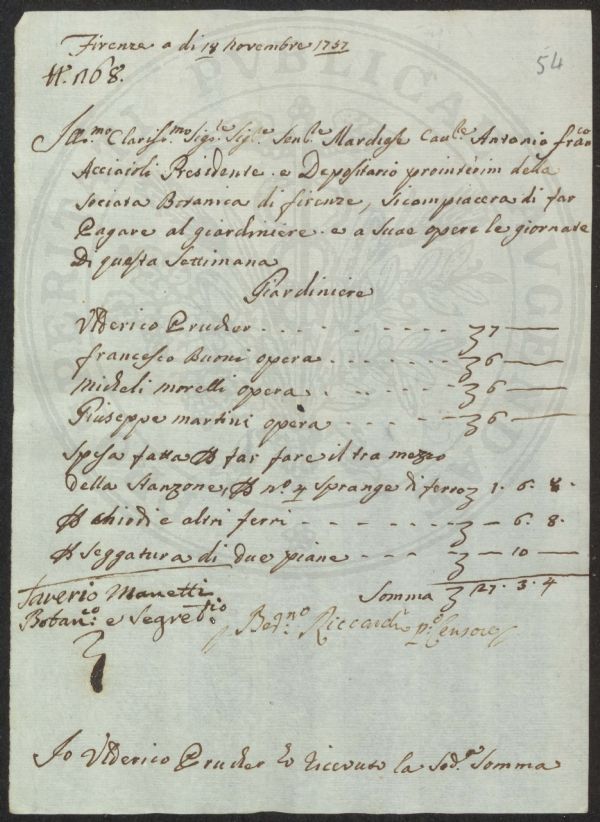 Firenze a di 18 Novembre 1757
54
N. 168.
Illmo. Clarissmo. Sigre. Sigre. Senle. Mardiese Caule. Antonio franco
Acciaioli Presidente e Depositario prointerim della
Sociata Botanica di firenze, si compiacera di far
Pagare al giardiniere e a suae opere le giornate
Di questa Settimana
Giardiniere
Ulderico Pruder . . . . . . . 7 —
francesco Buoni opera . . . . . 6 —
Micheli morelli opera . . . . . 6 —
Giuseppe martini opera . . . . . 6 —
Spesa fatta p far fare il tra mezzo
della Stanzone, p no. 4 Sprange di ferro 1. 6. 8.
p chiodi e altri ferri . . . . — 6. 8.
p seggatura di due piane . . . . — 10 —
Somma 27. 3. 4
Saverio Manetti
Botanco. e Segretrio.
Bedno. Riccardi po. Censore
Io Ulderico Pruder ho ricevuto la Soda. Somma